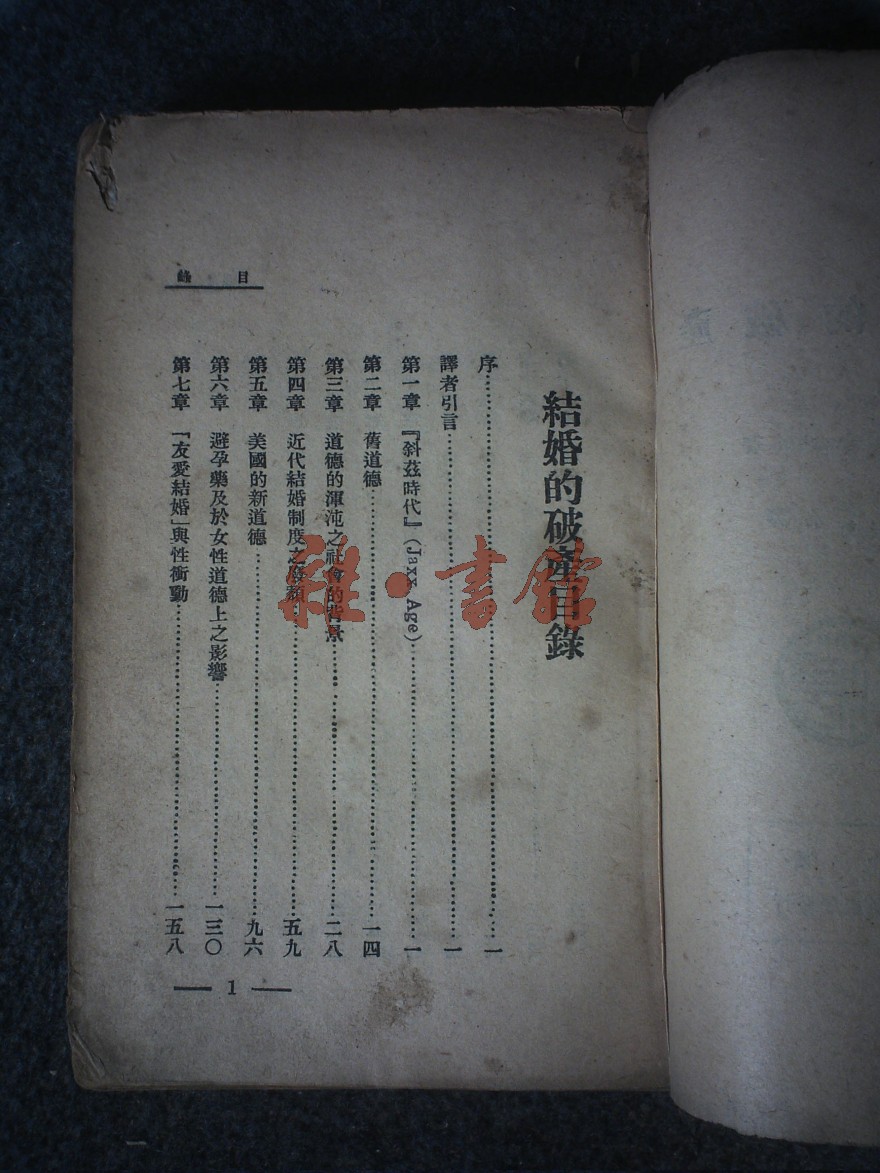 結婚的破產目錄
序……一
譯者引言……一
第一章 『斜茲時代』(Jaxx Age)……一
第二章 舊道德……一四
第三章 道德的渾沌之社會的背景……二八
第四章 近代結婚制度之……五九
第五章 美國的新道德……九六
第六章 避孕藥及於女性道德上之影響……一三〇
第七章 「友愛結婚」與性衝動……一五八
目錄
— 1 —
雜·書館